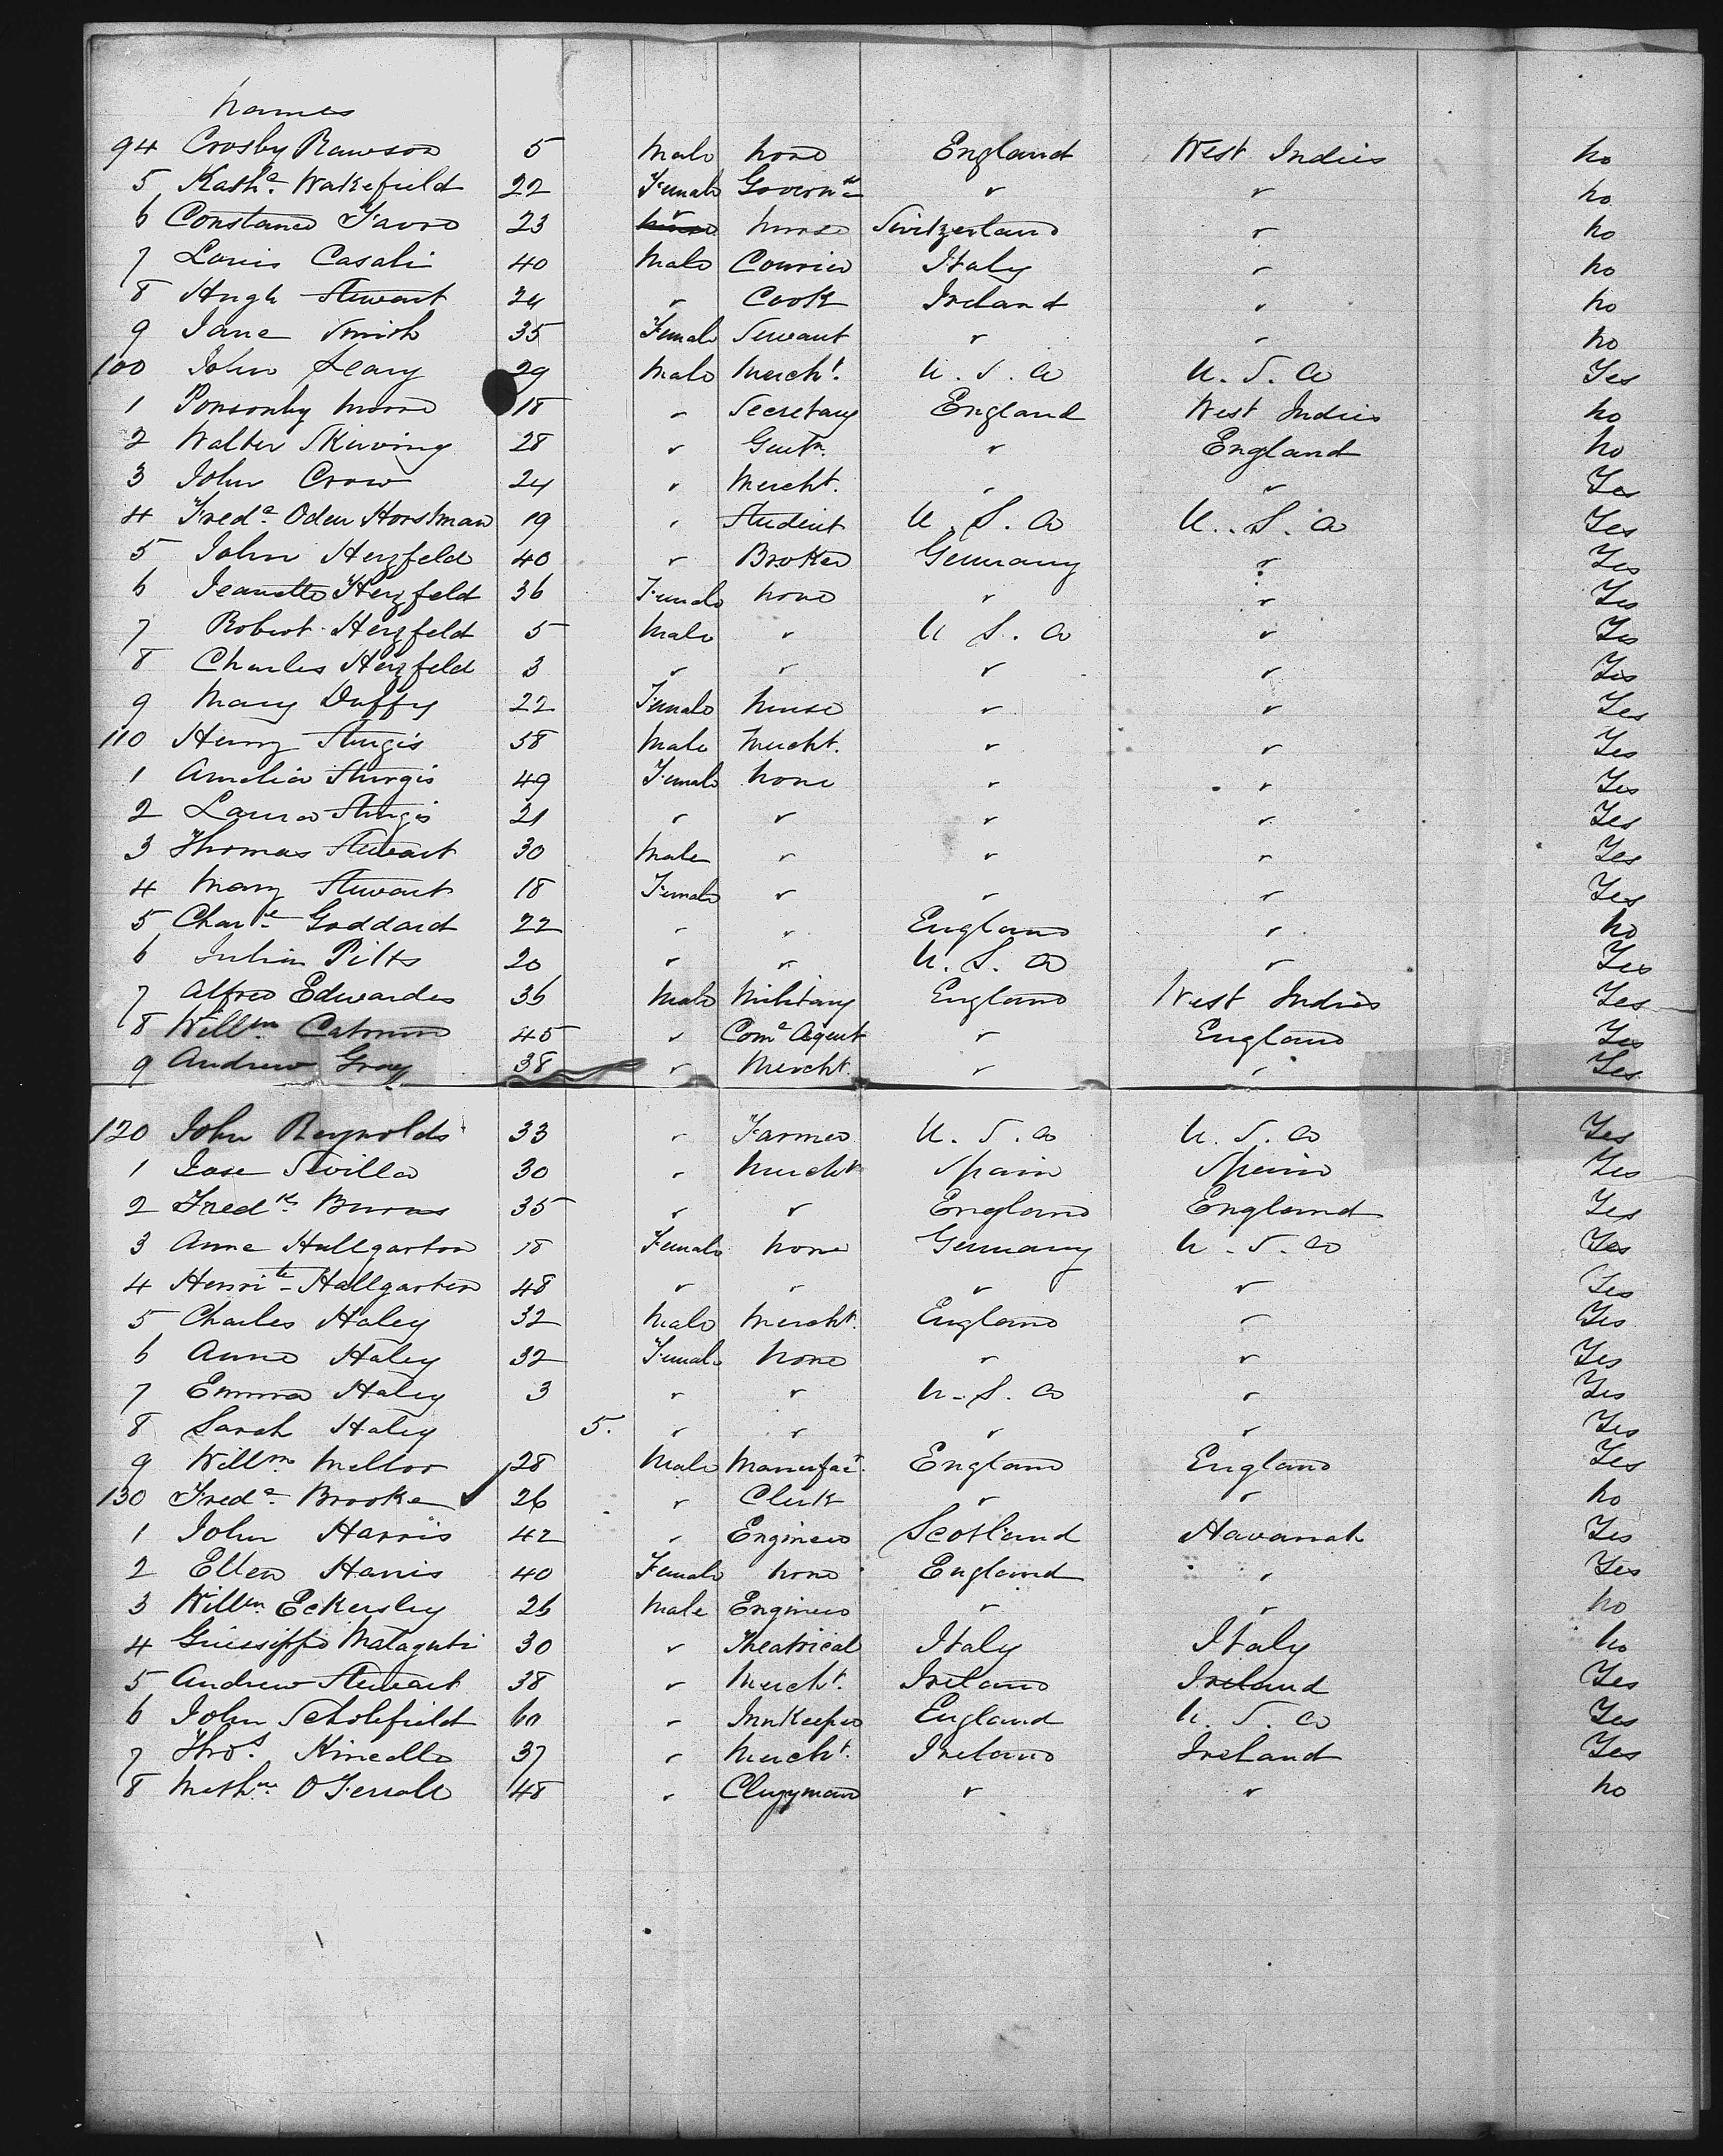 Names
94 Crosby Rawson 5 Male None England West Indies No
5 Kath.a Wakefield 22 Female Govern.ss " " No
6 Constance Favre 23 " Nurse Switzerland " No
7 Louis Casali 40 Male Courier Italy " No
8 Hugh Stewart 24 " Cook Ireland " No
9 Jane Smith 35 Female Servant " " No
100 John Leary 29 Male Merch.t U.S.A U.S.A Yes
1 Ponsonby Moore 18 " Secretary England West Indies No
2 Walter Skirving 28 " Gent.n " England No
3 John Crow 24 " Mercht. " " Yes
4 Fred.a Oden Horstman 19 " Student U.S.A U.S.A Yes
5 John Herzfeld 40 " Broker Germany " Yes
6 Jeanette Herzfeld 36 Female None " " Yes
7 Robert Herzfeld 5 Male " U S.A " Yes
8 Charles Herzfeld 3 " " " " Yes
9 Mary Duffy 22 Female Nurse " " Yes
110 Henry Sturgis 58 Male Mercht. " " Yes
1 Amelia Sturgis 49 Female None " " Yes
2 Laura Sturgis 21 " " " " Yes
3 Thomas Stewart 30 Male " " " Yes
4 Mary Stewart 18 Female " " " Yes
5 Char.te Goddard 22 " " England " No
6 Julia Pitts 20 " " U.S.A " Yes
7 Alfred Edwardes 36 Male Military England West Indies Yes
8 Will.m 45 " Com.a Agent " England Yes
9 Andrew Gray 38 " Mercht. " " Yes
120 John Reynolds 33 " Farmer U.S.A U.S.A Yes
1 Jose Sevilla 30 " Mercht Spain Spain Yes
2 Fred.k Burns 35 " " England England Yes
3 Anne Hallgarten 18 Female None Germany U.S.A Yes
4 Henri.te Hallgarten 48 " " " " Yes
5 Charles Haley 32 Male Mercht. England " Yes
6 Anne Haley 32 Female None " " Yes
7 Emma Haley 3 " " U.S.A " Yes
8 Sarah Haley 5. " " " " Yes
9 Will.m Mellor 28 Male Manufac.r England England Yes
130 Fred.a Brooke 26 " Clerk " " No
1 John Harris 42 " Engineer Scotland Havanah Yes
2 Ellen Harris 40 Female None England " Yes
3 Will.m Eckersley 26 Male Engineer " " No
4 Guissippe Malaguti 30 " Theatrical Italy Italy No
5 Andrew Stewart 38 " Merch.t Ireland Ireland Yes
6 John Scholefield 60 " InnKeeper England U.S.A Yes
7 Tho.s Kinealla 37 " Merch.t Ireland Ireland Yes
8 O Ferrall 48 " Clergyman " " No